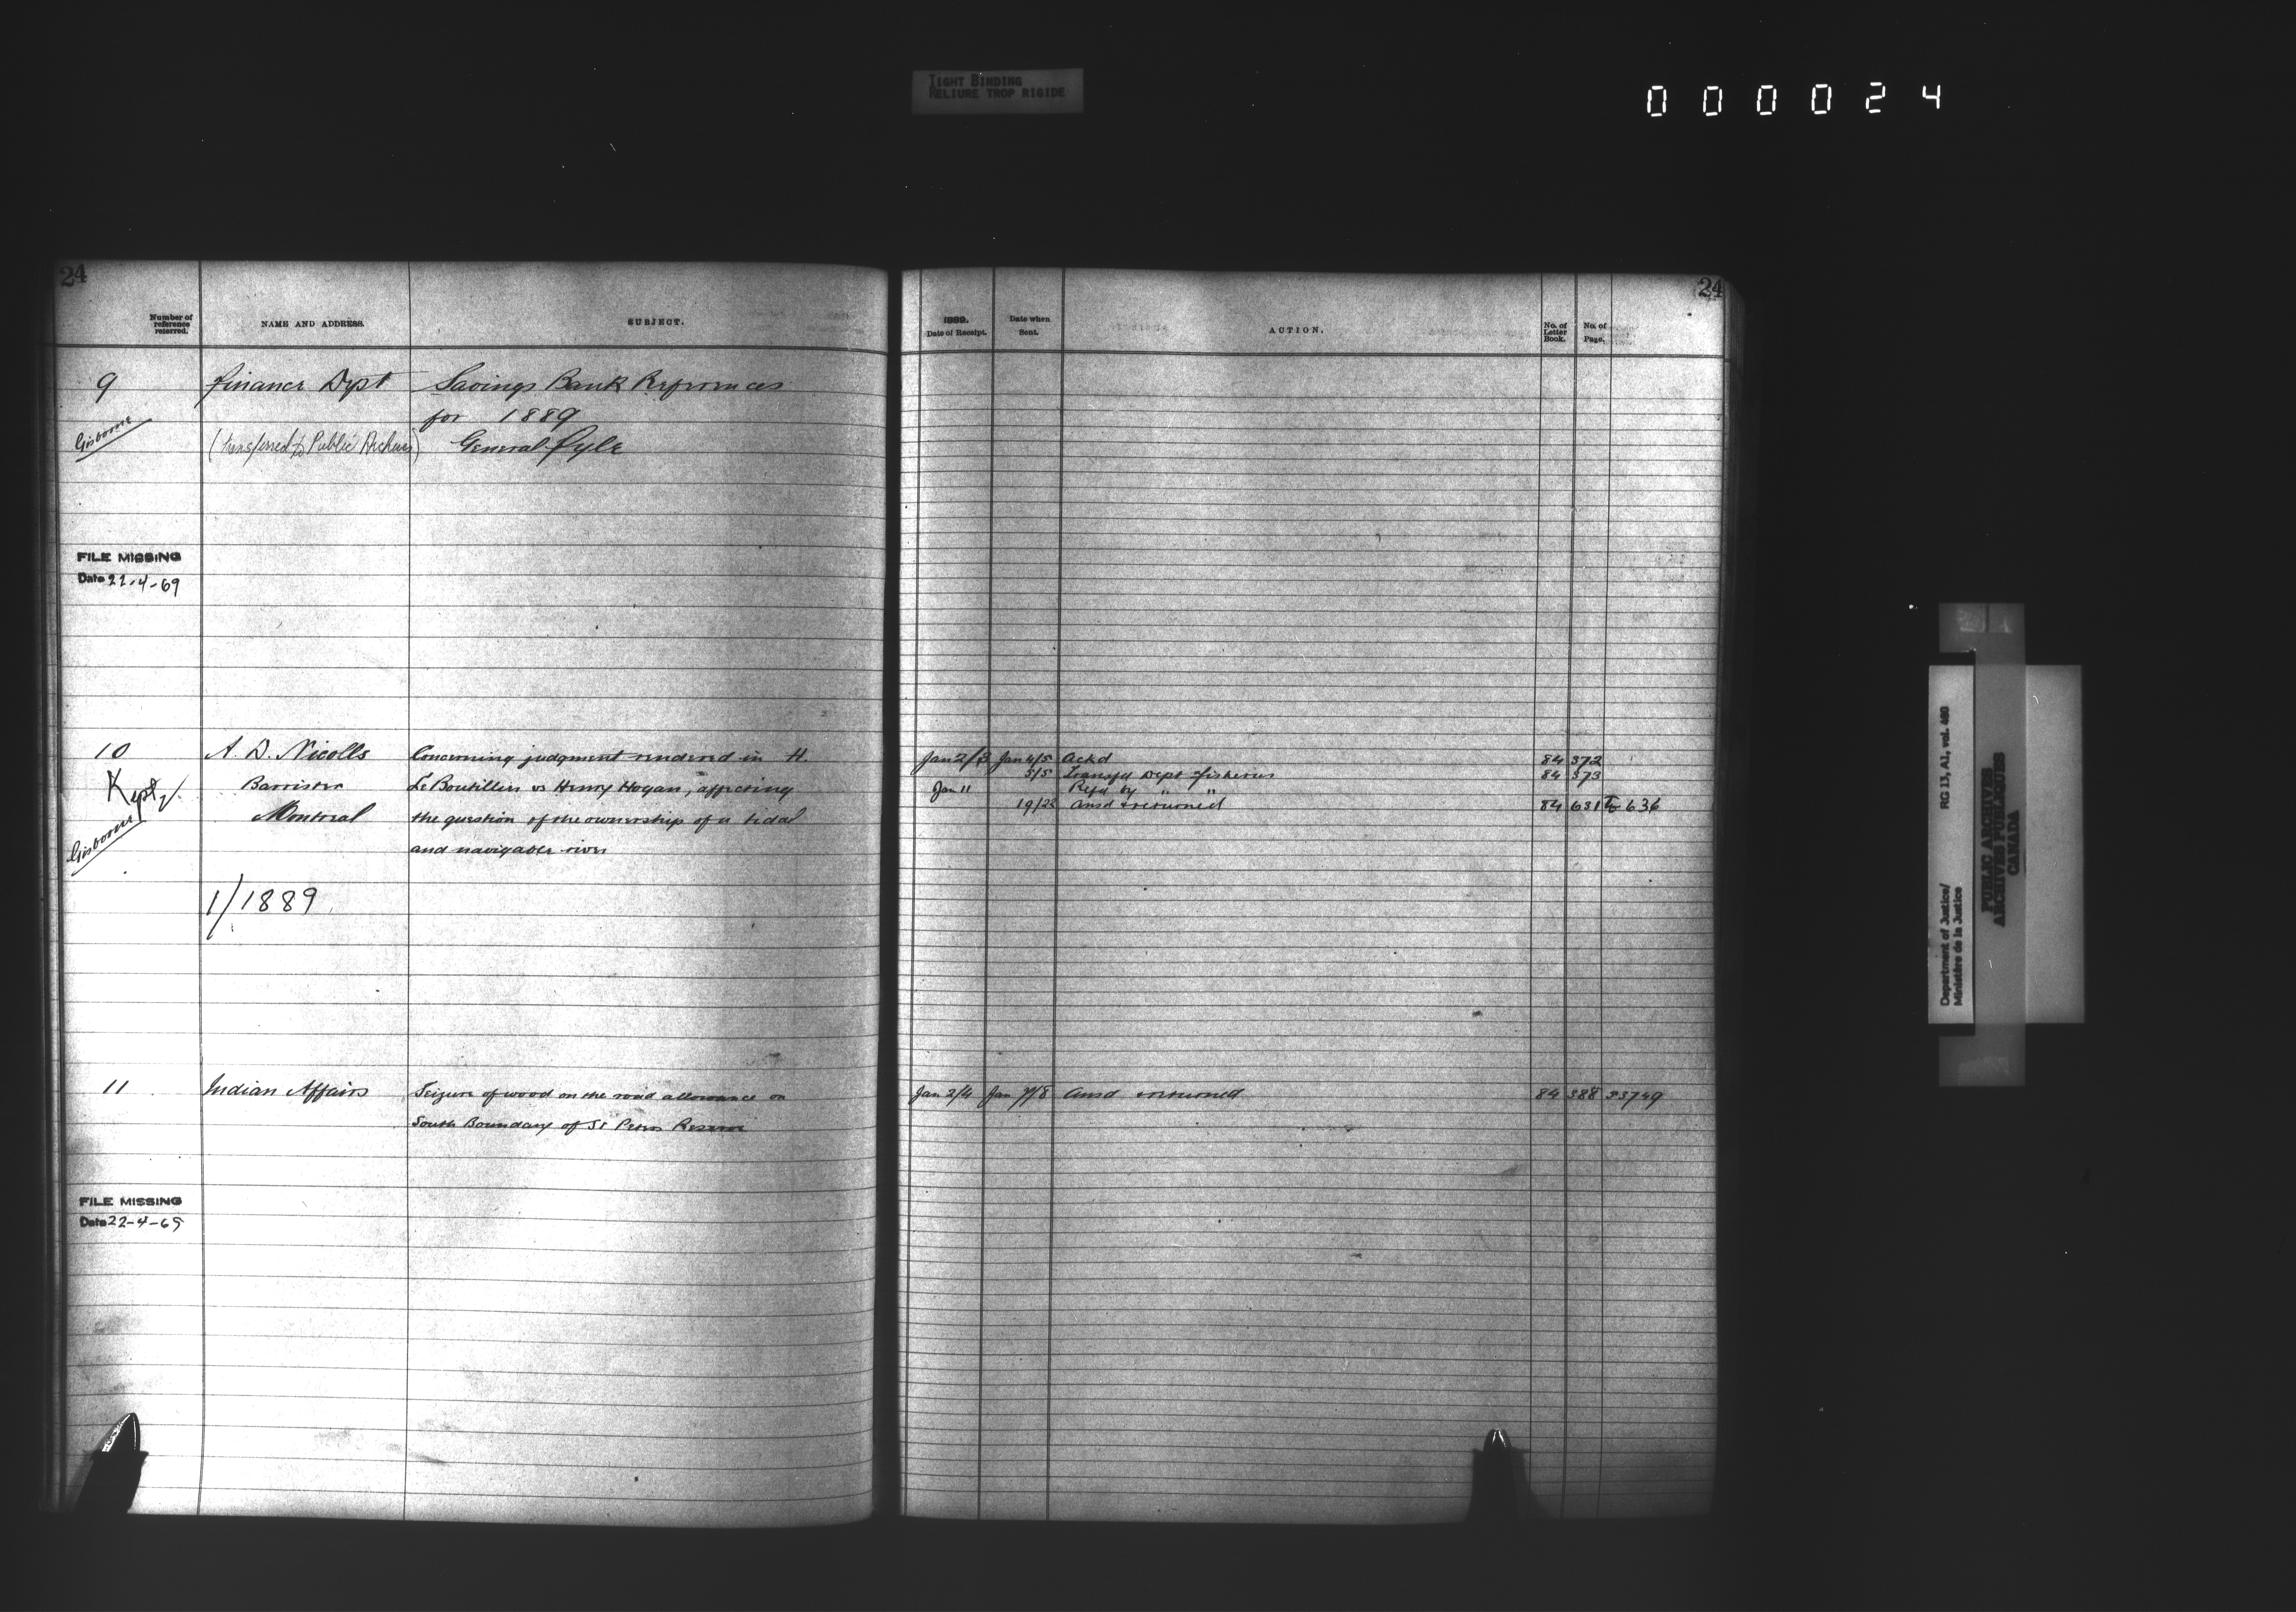 TIGHT BINDING
RELIURE TROP RIGIDE
000024
24
Number of reference referred.
NAME AND ADDRESS.
SUBJECT.
9 Finance Dept Savings Bank References
for 1889
Gisborne (transferred to Public Archives) General fyle
FILE MISSING
Date 22-4-69
10 A. D. Nicolls Concerning judgment rendered in H.
Kept Barrister LeBoutillier vs Henry Hogan, affecting
Gisborne Montreal the question of the ownership of a tidal
and navigable river
1/1889
11 Indian Affairs Seizure of wood on the road allowance on
South Boundary of St Peters Reserve
FILE MISSING
Date 22-4-69
24
1889.
Date of Receipt.
Date when Sent.
ACTION.
No. of Letter Book.
No. of Page.
Jan 2/3 Jan 4/5 Ackd 84 372
5/5 Transfd Dept fisheries 84 373
Jan 11 Refd by " "
19/22 Ansd & returned 84 631 to 636
Jan 2/4 Jan 7/8 Ansd & returned 84 388 33749
Department of Justice/
Ministère de la Justice
RG 13, A1, vol. 480
PUBLIC ARCHIVES
ARCHIVES PUBLIQUES
CANADA